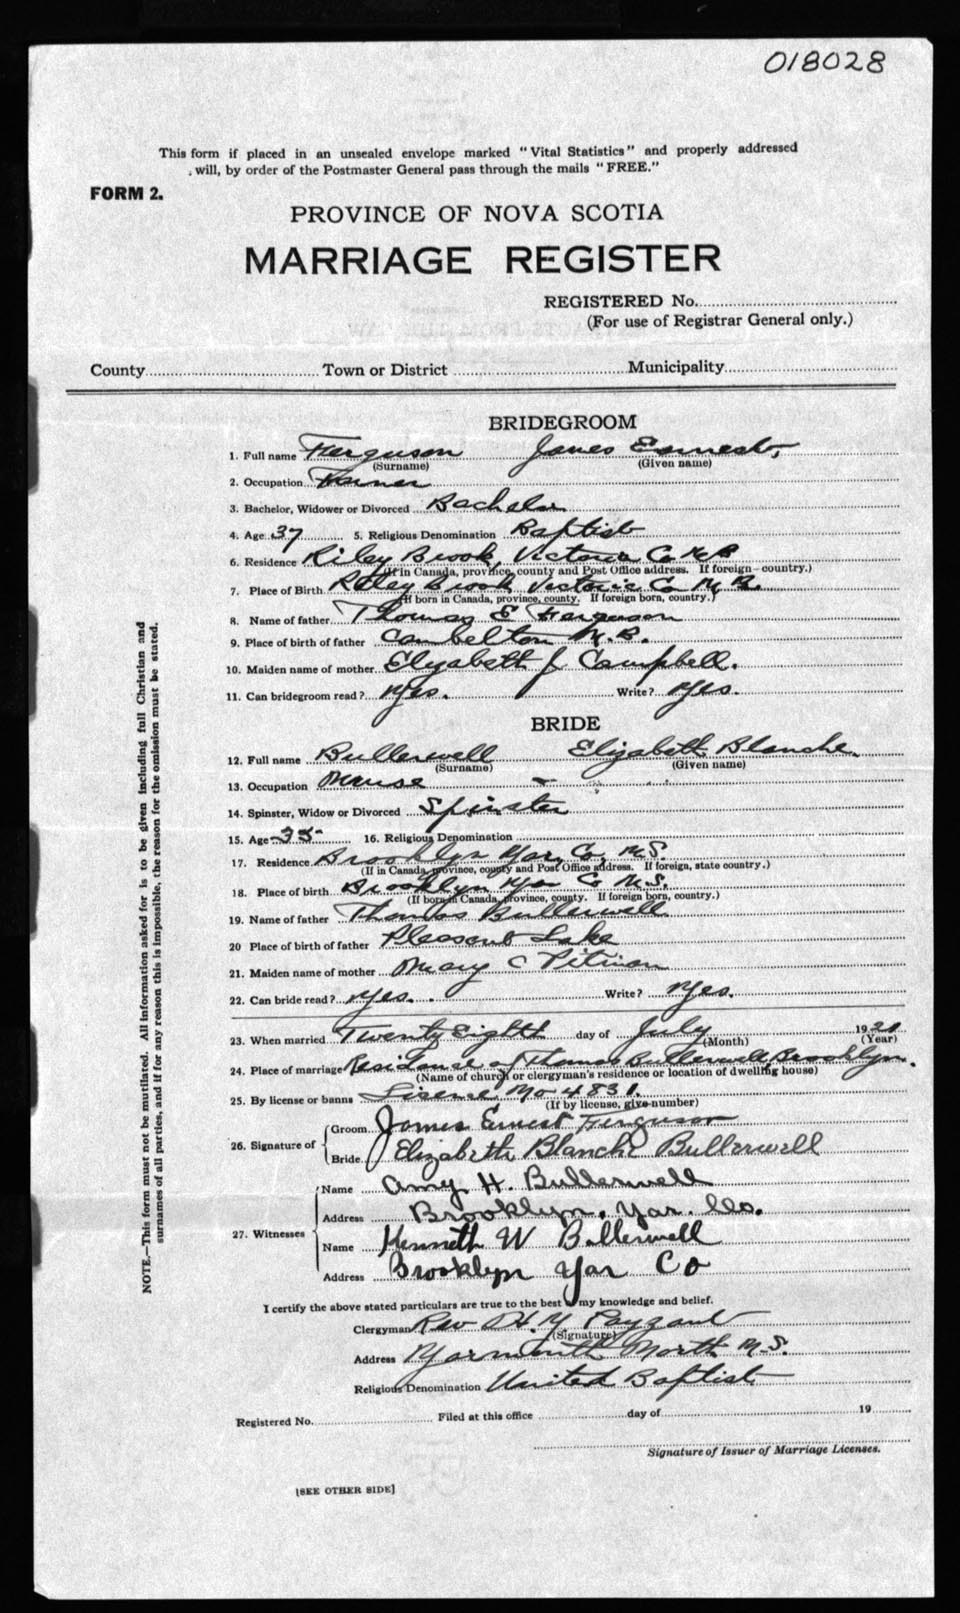 018028
This form if placed in an unsealed envelope marked "Vital Statistics" and properly addressed
will, by order of the Postmaster General pass through the mails "FREE."
FORM 2.
PROVINCE OF NOVA SCOTIA
MARRIAGE REGISTER
REGISTERED No.
(For use of Registrar General only.)
County Town or District Municipality
BRIDEGROOM
1. Full name Ferguson James Earnest,
(Surname) (Given name)
2. Occupation Farmer
3. Bachelor, Widower or Divorced Bachelor
4. Age 37 5. Religious Denomination Baptist
6. Residence Riley Brook, Victoria Co N B
(If in Canada, province, county and Post Office address. If foreign country.)
7. Place of Birth Riley Brook Victoria Co N. B.
(If born in Canada, province, county. If foreign born, country.)
8. Name of father Thomas E Ferguson
9. Place of birth of father Cambelton N. B.
10. Maiden name of mother Elyabeth J Campbell.
11. Can bridegroom read? Yes. Write? Yes.
BRIDE
12. Full name Bullerwell Elizabeth Blanche.
(Surname) (Given name)
13. Occupation Nurse
14. Spinster, Widow or Divorced Spinster
15. Age 35 16. Religious Denomination
17. Residence Brooklyn Yar. Co, N.S.
(If in Canada, province, county and Post Office address. If foreign, state country.)
18. Place of birth Brooklyn Yar Co N.S.
(If born in Canada, province, county. If foreign born, country.)
19. Name of father Thomas Bullerwell
20 Place of birth of father Pleasant Lake
21. Maiden name of mother Mary C Pitman
22. Can bride read? Yes. Write? Yes.
23. When married Twenty Eighth day of July 1920
(Month) (Year)
24. Place of marriage Residence of Thomas Bullerwell, Brooklyn.
(Name of church or clergyman's residence or location of dwelling house)
25. By license or banns Lisence No 4831.
(If by license, give number)
26. Signature of Groom James Ernest Ferguson
Bride Elizabeth Blanche Bullerwell
27. Witnesses Name Amy H. Bullerwell
Address Brooklyn, Yar. Co.
Name Kenneth W Bullerwell
Address Brooklyn Yar Co
I certify the above stated particulars are true to the best of my knowledge and belief.
Clergyman Rev H. Y Payzant
(Signature)
Address Yarmouth North N.S.
Religious Denomination United Baptist
Registered No. Filed at this office day of 19
Signature of Issuer of Marriage Licenses.
[SEE OTHER SIDE]
NOTE.—This form must not be mutilated. All information asked for is to be given including full Christian and
surnames of all parties, and if for any reason this is impossible, the reason for the omission must be stated.